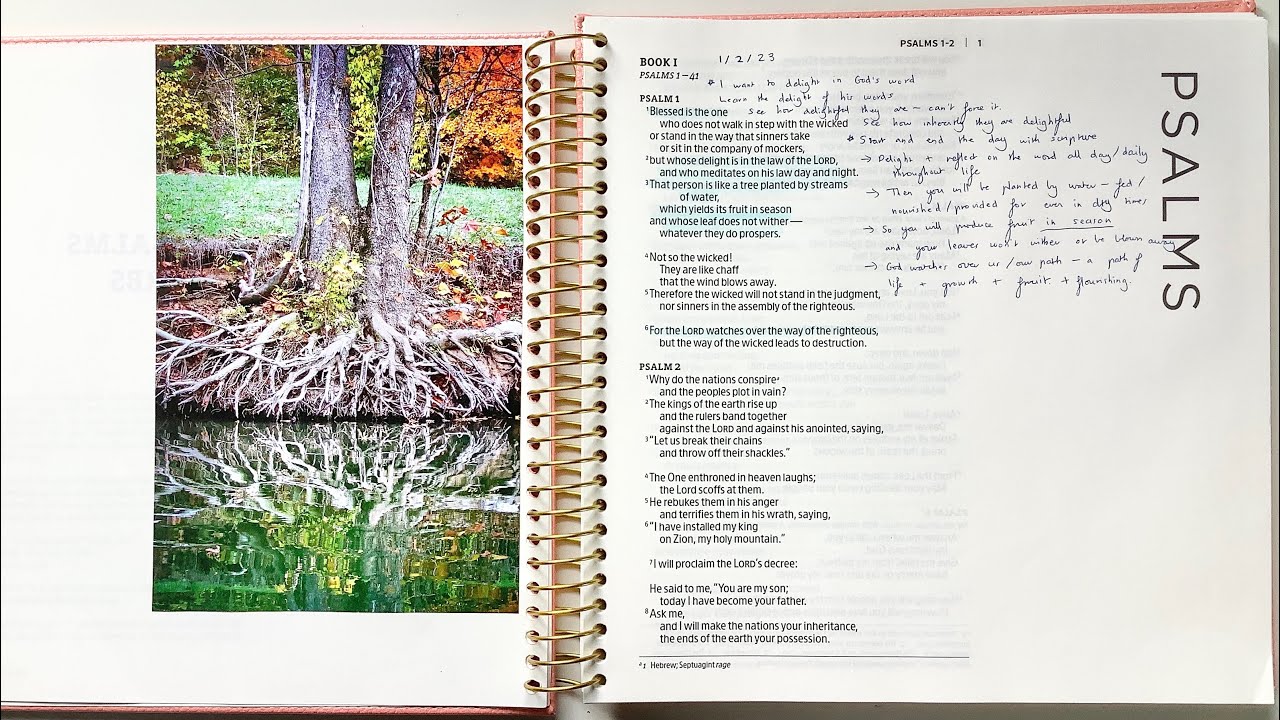 PSALMS 1-2 | 1
BOOK I
1/2/23
PSALMS 1–41
* I want to delight in God's word
Learn the delight of his words
PSALM 1
see how delightful they are – can't force it.
See how inherently they are delightful
* Start and end the day with scripture
→ Delight + reflect on the word all day/daily
throughout life
→ Then you will be planted by water – fed/
nourished/provided for even in dry times
→ So you will produce fruit in season
and your leaves won't wither or be blown away
→ God watches over us/our path – a path of
life + growth + fruit + flourishing.
1Blessed is the one
who does not walk in step with the wicked
or stand in the way that sinners take
or sit in the company of mockers,
2but whose delight is in the law of the LORD,
and who meditates on his law day and night.
3That person is like a tree planted by streams
of water,
which yields its fruit in season
and whose leaf does not wither—
whatever they do prospers.
4Not so the wicked!
They are like chaff
that the wind blows away.
5Therefore the wicked will not stand in the judgment,
nor sinners in the assembly of the righteous.
6For the LORD watches over the way of the righteous,
but the way of the wicked leads to destruction.
PSALM 2
1Why do the nations conspirea
and the peoples plot in vain?
2The kings of the earth rise up
and the rulers band together
against the LORD and against his anointed, saying,
3"Let us break their chains
and throw off their shackles."
4The One enthroned in heaven laughs;
the Lord scoffs at them.
5He rebukes them in his anger
and terrifies them in his wrath, saying,
6"I have installed my king
on Zion, my holy mountain."
7I will proclaim the LORD's decree:
He said to me, "You are my son;
today I have become your father.
8Ask me,
and I will make the nations your inheritance,
the ends of the earth your possession.
a1 Hebrew; Septuagint rage
PSALMS